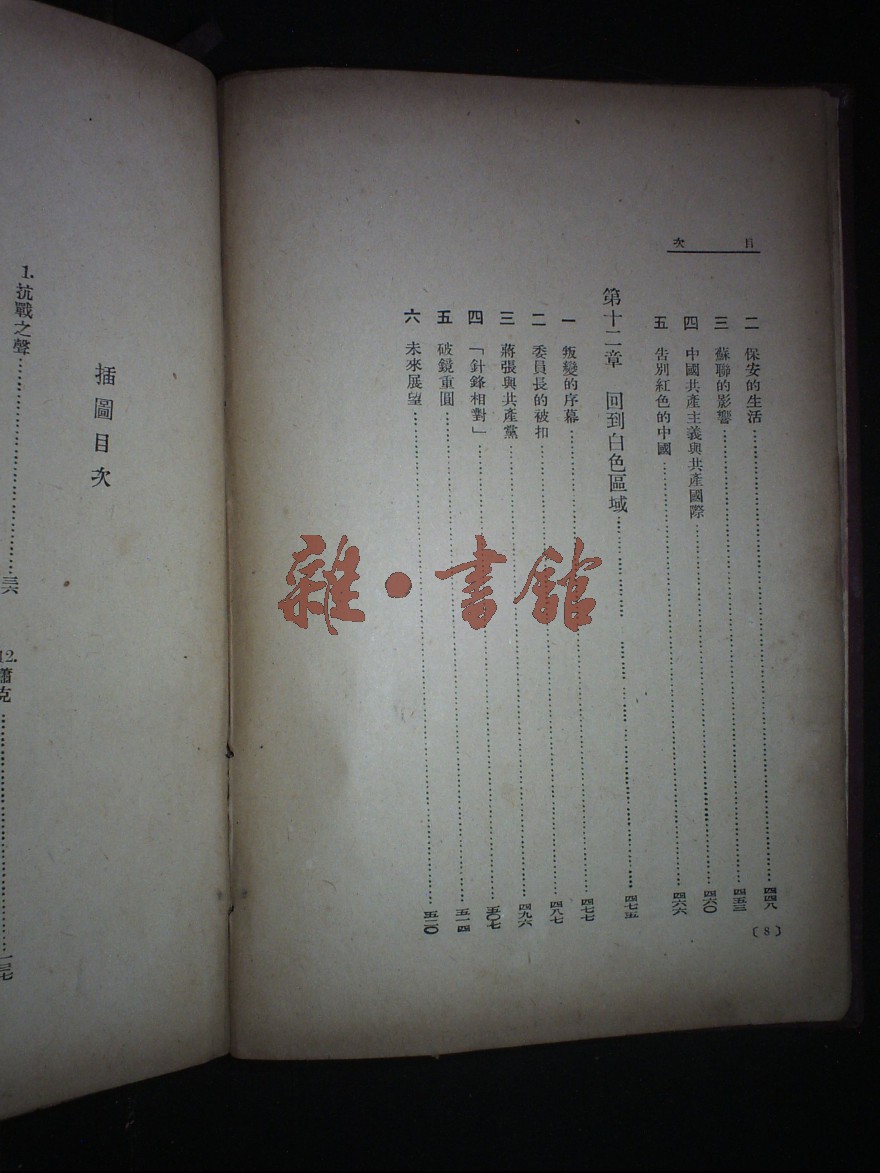 目次
二 保安的生活……四四八
三 蘇聯的影響……四五三
四 中國共產主義與共產國際……四六〇
五 告別紅色的中國……四六六
第十二章 回到白色區域……四七五
一 叛變的序幕……四七七
二 委員長的被扣……四八七
三 蔣張與共產黨……四九六
四 「針鋒相對」……五〇七
五 破鏡重圓……五一四
六 未來展望……五二〇
〔8〕
插圖目次
1. 抗戰之聲……三六
12. 蕭克……一三七
雜·書館